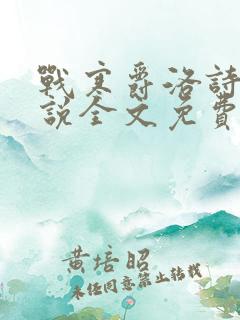 戰寒爵洛詩
說全文免費
黃培昭
未任同意禁止转载